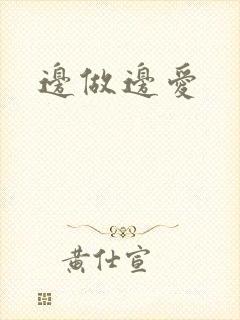 邊做邊愛
黄仕宣